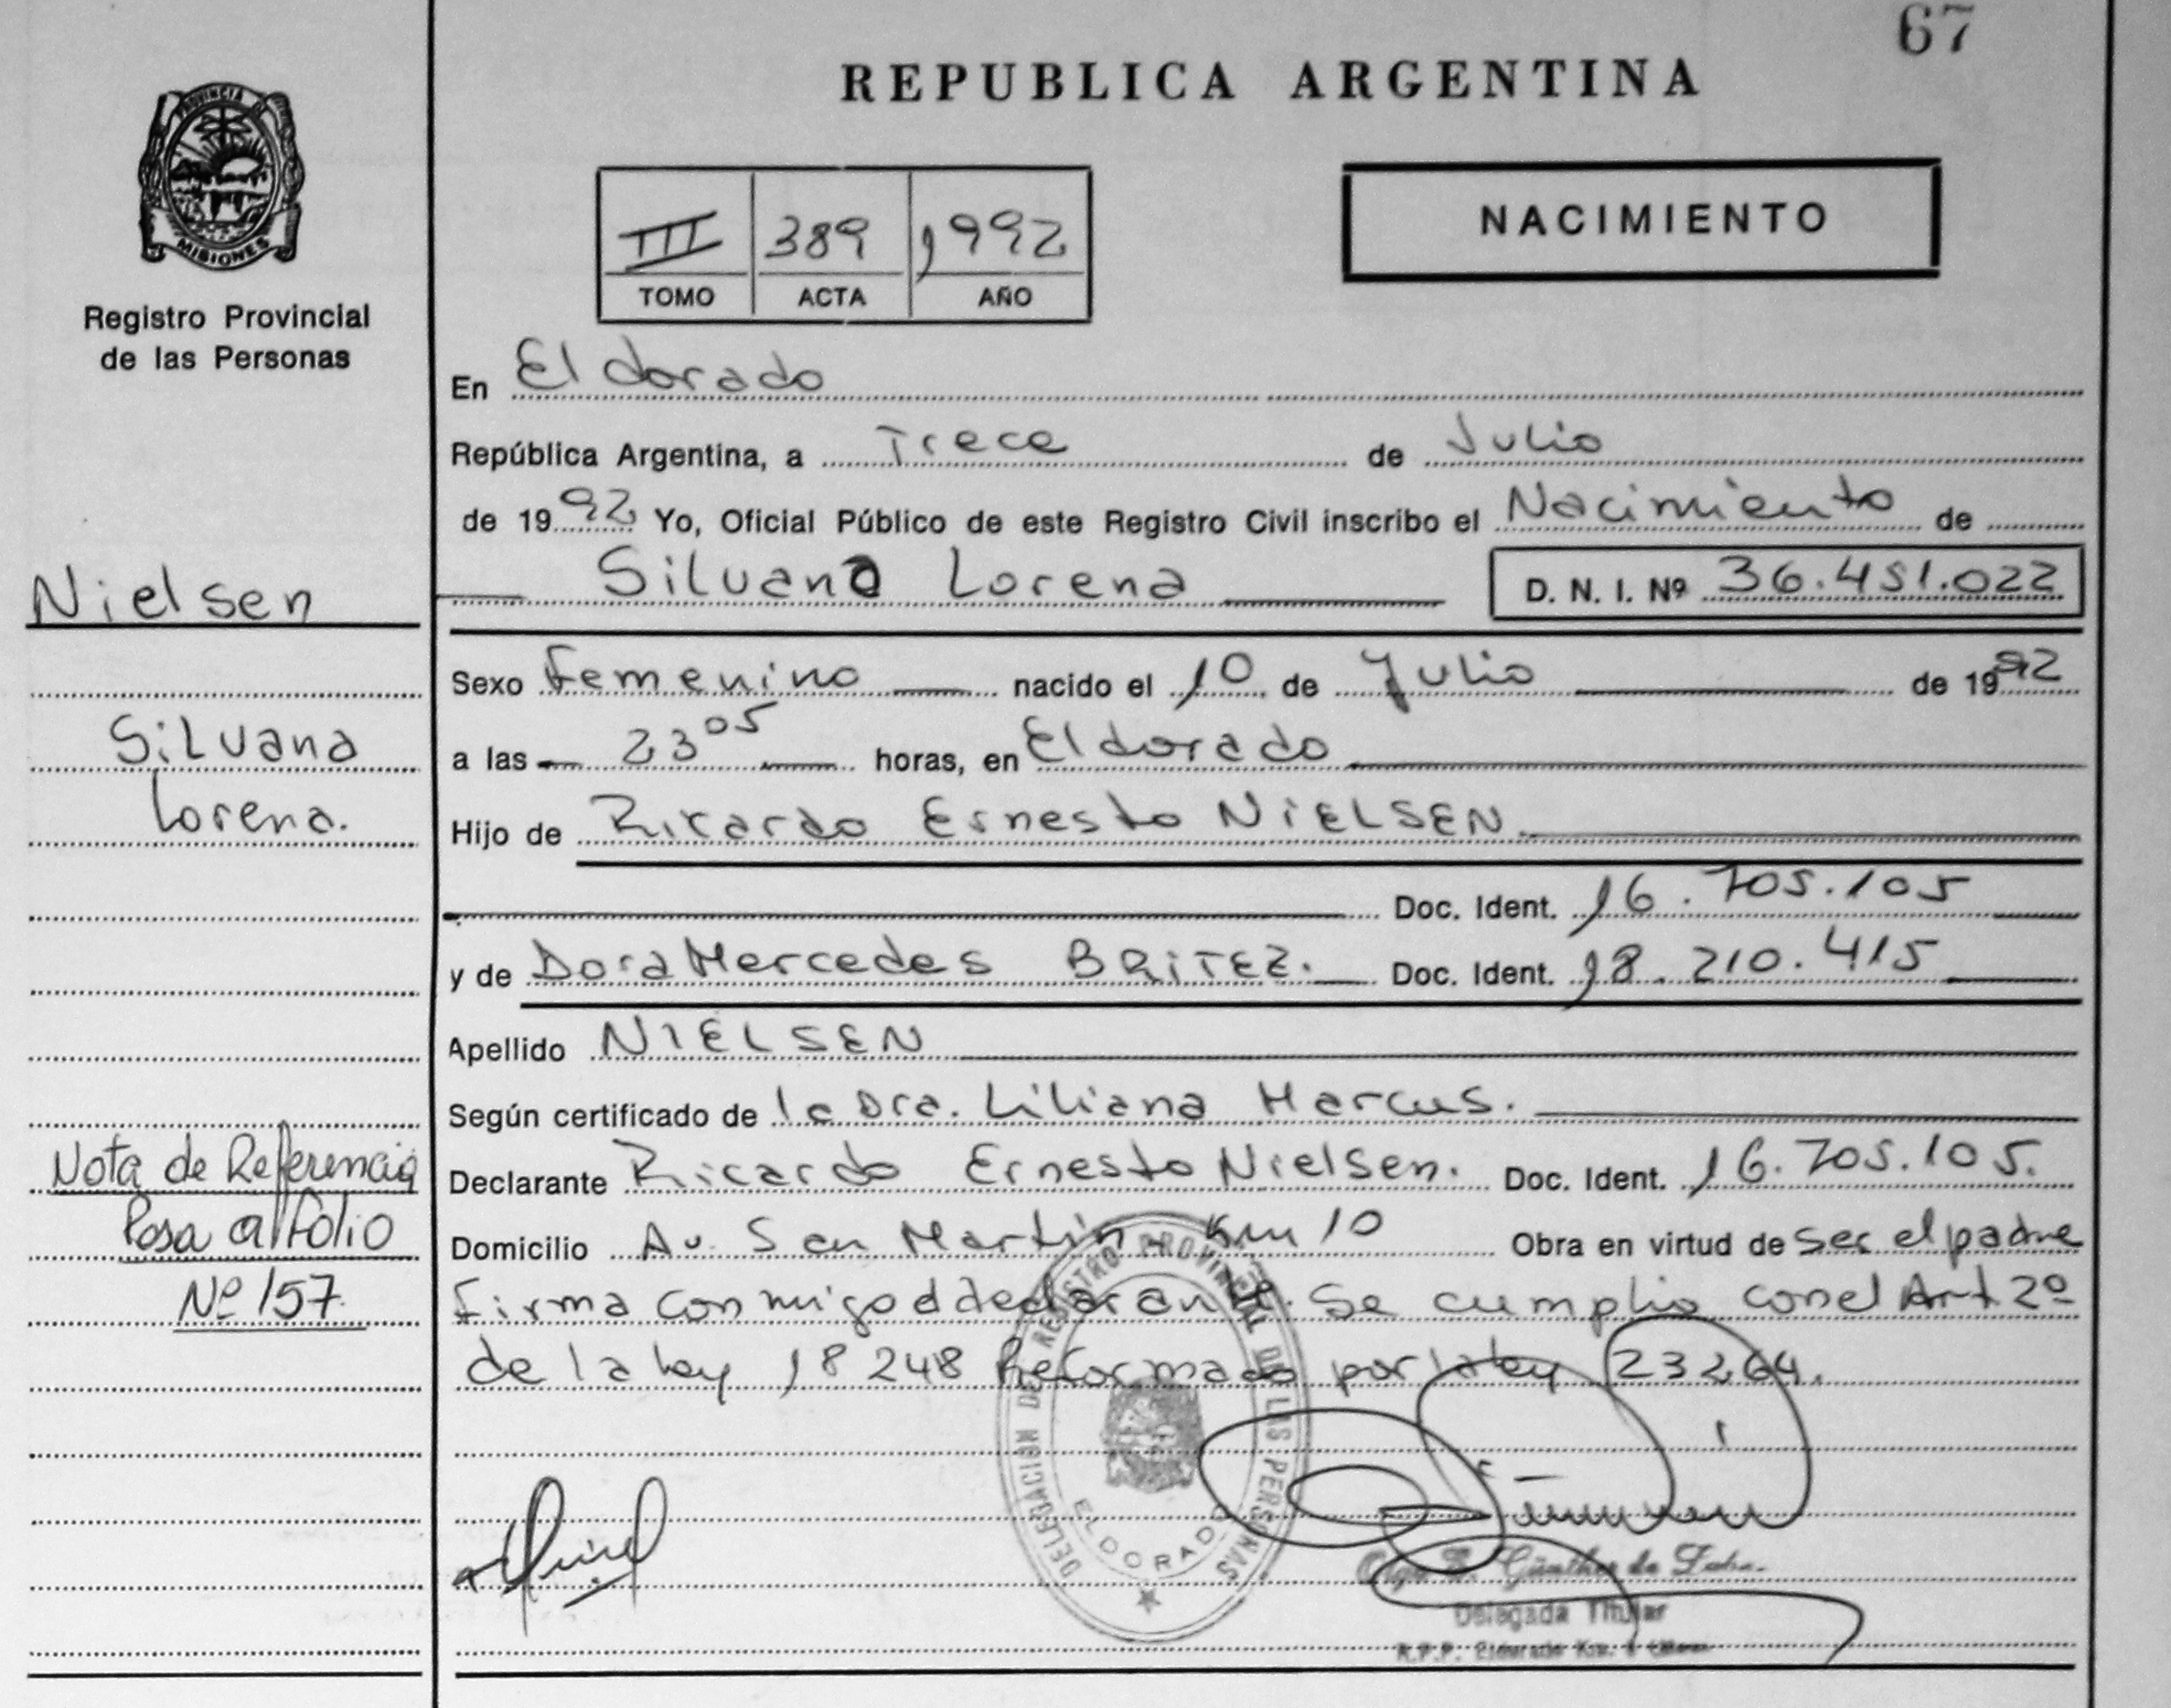 67
REPUBLICA ARGENTINA
PROVINCIA
MISIONES
Registro Provincial
de las Personas
III 389 1992
TOMO ACTA AÑO
NACIMIENTO
En Eldorado
República Argentina, a Trece de Julio
de 1992 Yo, Oficial Público de este Registro Civil inscribo el Nacimiento de
Silvana Lorena D. N. I. Nº 36.451.022
Nielsen
Silvana
Lorena.
Sexo Femenino nacido el 10 de Julio de 1992
a las 23 05 horas, en Eldorado
Hijo de Ricardo Ernesto NIELSEN
Doc. Ident. 16.705.105
y de Dora Mercedes BRITEZ. Doc. Ident. 18.210.415
Apellido NIELSEN
Según certificado de la Dra. Liliana Marcus.
Declarante Ricardo Ernesto Nielsen. Doc. Ident. 16.705.105.
Domicilio Av. San Martin Km 10 Obra en virtud de ser el padre
Firma conmigo el declarante. Se cumplio con el Art 2º
de la ley 18248 Reformado por la ley 23264.
Nota de Referencia
Pasa al folio
Nº 157.
DELEGACION DEL REGISTRO PROVINCIAL DE LAS PERSONAS
ELDORADO
Günther de
Delegada Titular
R.P.P. Eldorado Km.